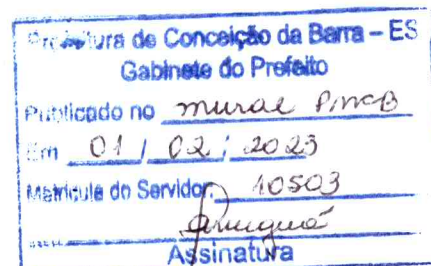 Prefeitura de Conceição da Barra – ES
Gabinete do Prefeito
Publicado no mural PMCB
Em 01 / 02 / 2023
Matrícula do Servidor 10503
Assinatura